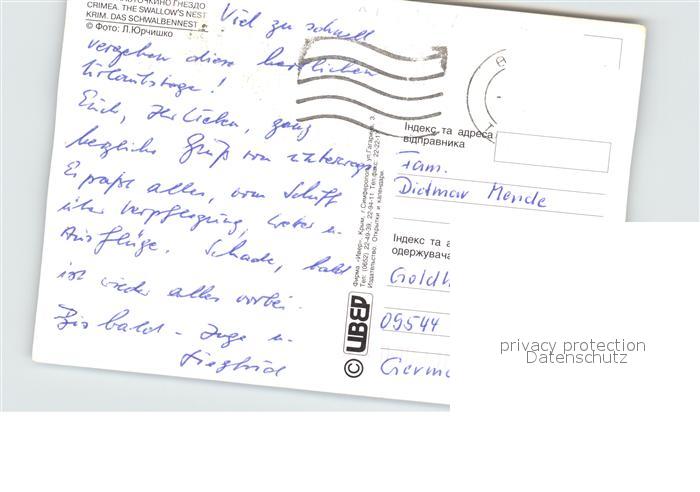 ЛАСТОЧКИНО ГНЕЗДО
CRIMEA. THE SWALLOW'S NEST
KRIM. DAS SCHWALBENNEST
© Фото: Л.Юрчишко
Viel zu schnell
vergehen diese herrlichen
Urlaubstage!
Euch, Ihr Lieben, ganz
herzliche Grüße von unterwegs
Es paßt alles, vom Schiff
über Verpflegung, Wetter u.
Ausflüge. Schade, bald
ist wieder alles vorbei.
Bis bald - Inge u.
Siegfried
Фирма «Ивер». Крым, г.Симферополь, ул.Гагарина, 3.
Тел: (0652) 22-49-39, 22-94-11. Тел.факс: 22-22-1
Издательство. Открытки и календари.
© ИВЕР
Індекс та адреса
відправника
Fam.
Dietmar Mende
Індекс та а
одержувача
Goldh
09544
Germa
privacy protection
Datenschutz